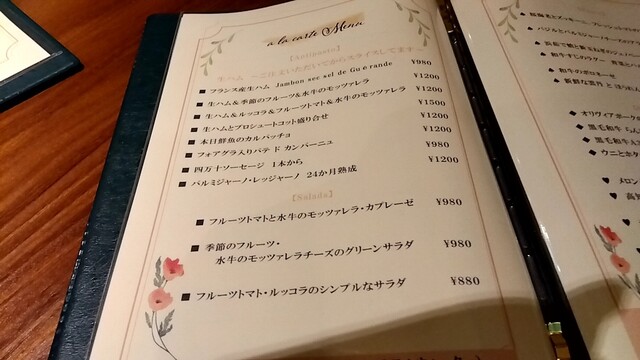 a la carte Menu
【Antipasto】
生ハム ～ご注文いただいてからスライスしてます～
■ フランス産生ハム Jambon sec sel de Guérande ¥980
■ 生ハム＆季節のフルーツ＆水牛のモッツァレラ ¥1200
■ 生ハム＆ルッコラ＆フルーツトマト＆水牛のモッツァレラ ¥1200
■ 生ハムとプロシュートコット盛り合せ ¥1500
■ 本日鮮魚のカルパッチョ ¥1200
■ フォアグラ入りパテ ド カンパーニュ ¥1200
■ 四万十ソーセージ 1本から ¥980
■ パルミジャーノ・レッジャーノ 24か月熟成 ¥1200
【Salada】
■ フルーツトマトと水牛のモッツァレラ・カプレーゼ ¥980
■ 季節のフルーツ・
水牛のモッツァレラチーズのグリーンサラダ ¥980
■ フルーツトマト・ルッコラのシンプルなサラダ ¥880
和牛のボロネーゼ
オリヴィアポークの
黒毛和牛
黒毛和牛
ウニとホタ
♥ メロン